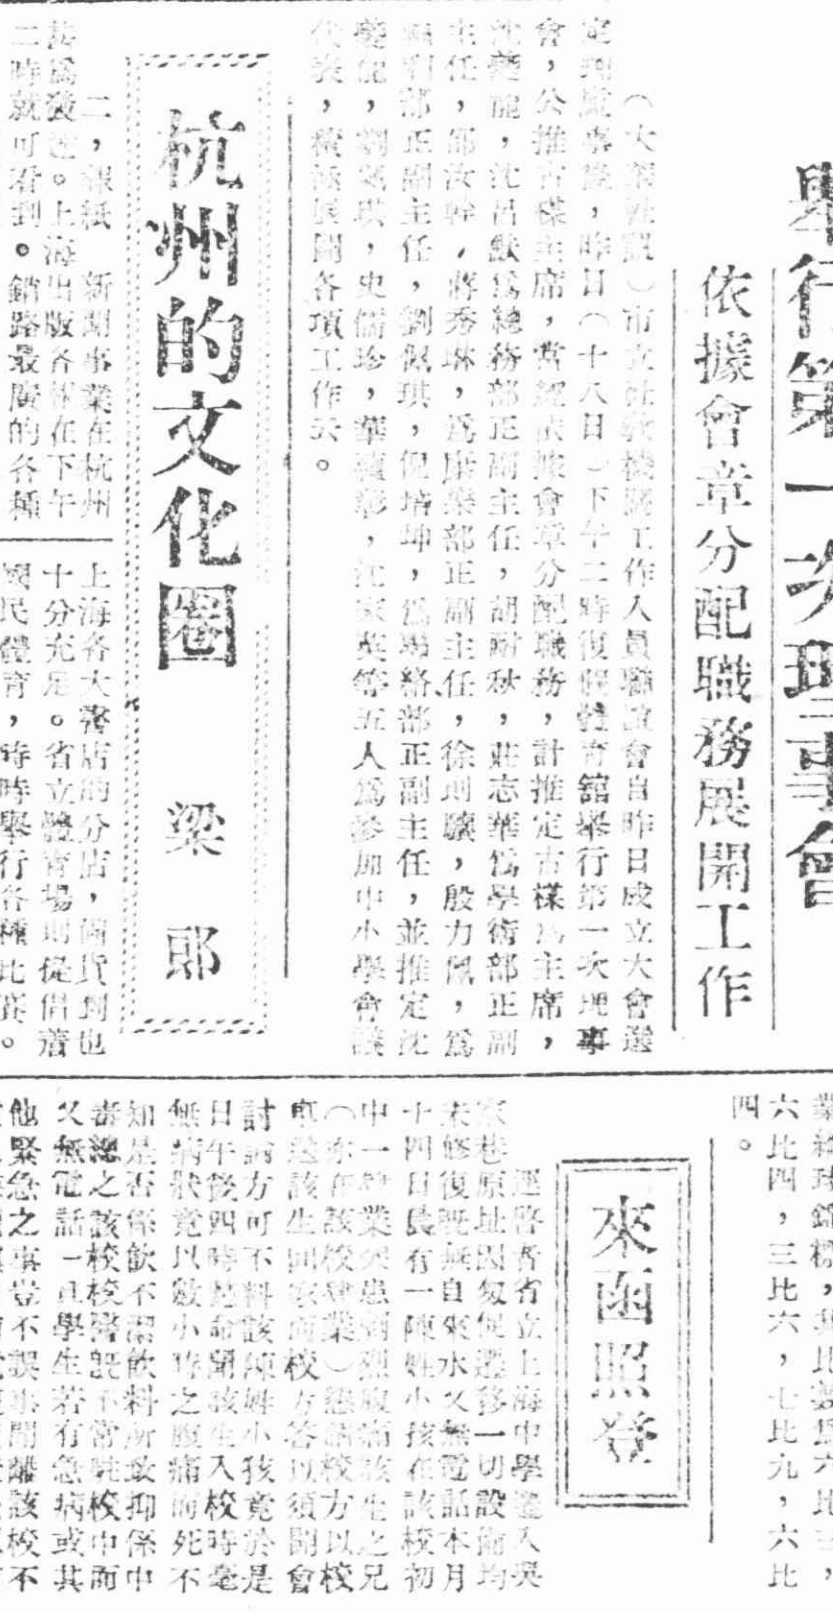 舉行第一次理事會
依據會章分配職務展開工作
(大華社訊)市立社教機關工作人員聯誼會自昨日成立大會選
定理監事後,昨日(十八日)下午二時復假體育館舉行第一次理事
會,公推古樣主席,當經依據會章分配職務,計推定古樣爲主席,
沈夔龍,沈呂默爲總務部正副主任,胡耐秋,莊志華爲學術部正副
主任,邵汝幹,蔣秀琳,爲康樂部正副主任,徐則驤,殷力佩,爲
部正副主任,劉佩琪,倪培坤,爲聯絡部正副主任,並推定沈
夔龍,劉佩琪,史儒珍,華 彰,沈家英等五人爲參加中小學會議
代表,積極展開各項工作云。
杭州的文化圈
梁郎
二,報紙 新聞事業在杭州
甚爲發達。上海出版各報在下午
二時就可看到。銷路最廣的各種
上海各大書店的分店,備貨到也
十分充足。省立體育場則提倡着
國民體育,時時舉行各種比賽。
業餘球錦標,其比數爲六比三,
六比四,三比六,七比九,六比
四。
來函照登
逕啓者省立上海中學遷入吳
家巷原址因匆促遷移一切設備均
未修復既無自來水又無電話本月
十四日晨有一陳姓小孩在該校初
中一肄業突患劇烈腹痛該生之兄
(亦在該校肄業)懇請校方以校
車送該生回家而校方答以須開會
討論方可不料該陳姓小孩竟於是
日午後四時 命聞該生入校時毫
無病狀竟以數小時之腹痛而死不
知是否係飲不潔飲料所致抑係中
毒總之該校校醫既不常駐校中而
又無電話一旦學生若有急病或其
他緊急之事豈不誤事聞離該校不